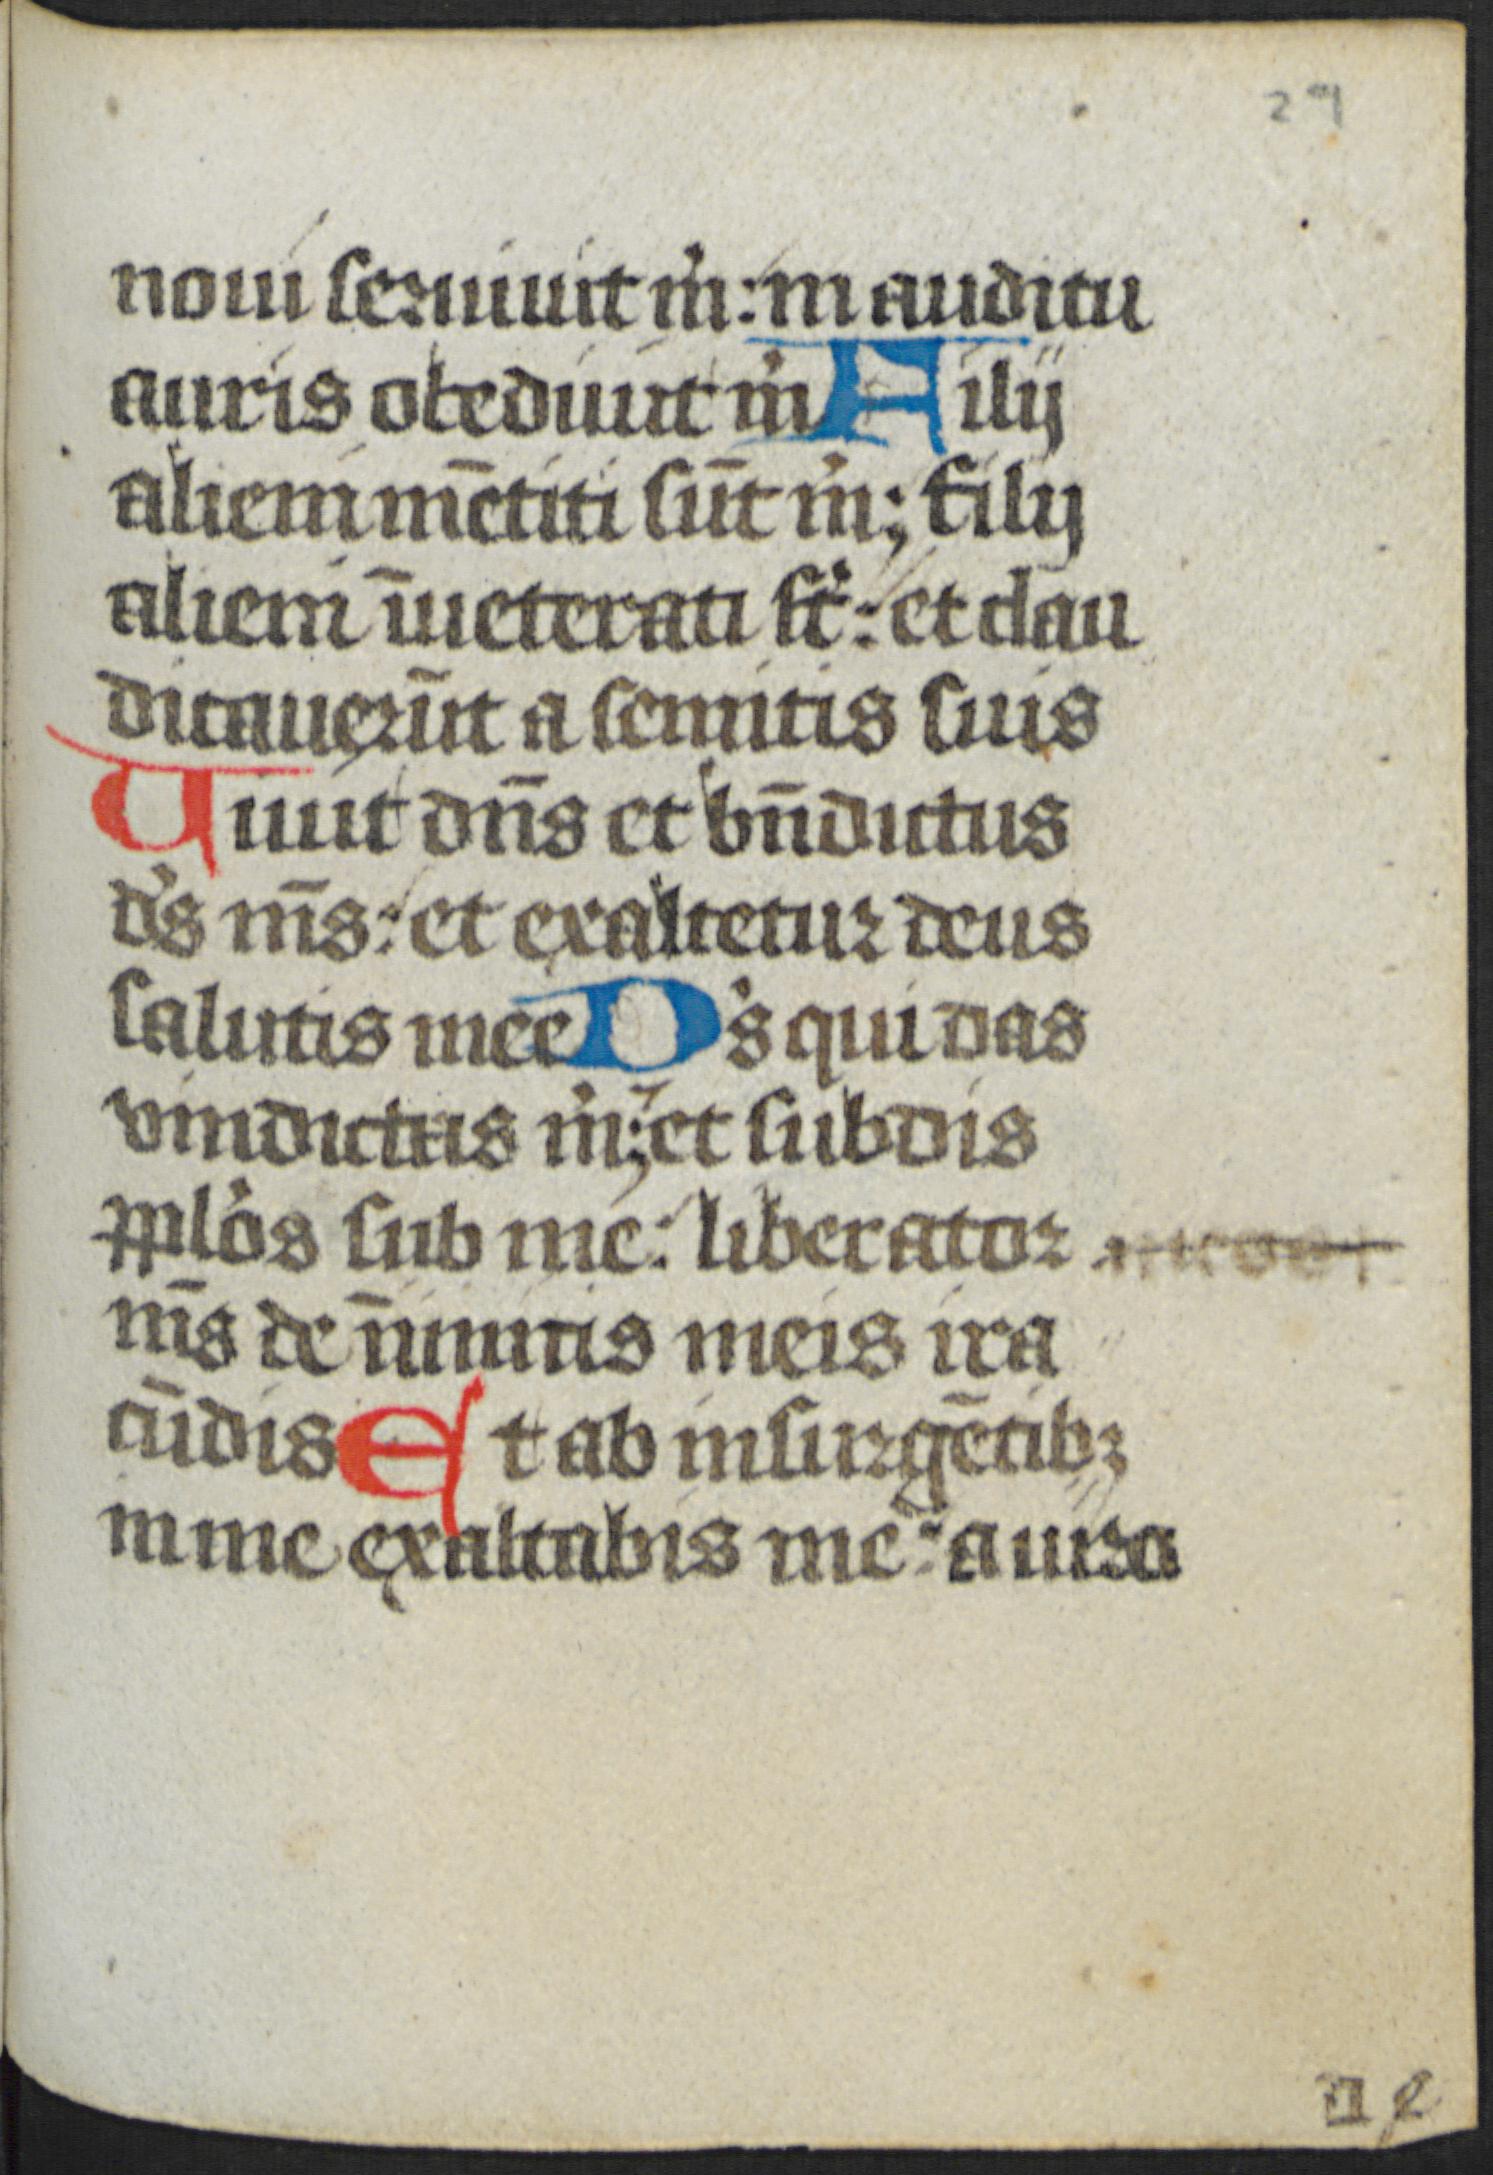 29
noui seruiuit ṁ: in auditu
auris obediuit ṁ Filij
alieni mētiti sūt ṁ; filij
alieni īueterati st̄: et clau
dicauerūt a semitis suis
Viuit dn̄s et bn̄dictus
ds̓ ms̄: et exaltetur deus
salutis mee Ds̓ qui das
vindictas ṁ; et subdis
ppl̓os sub me: liberator
ms̄ de īnimicis meis ira
cūdis Et ab insurgētibꝫ
in me exaltabis me: a uiro